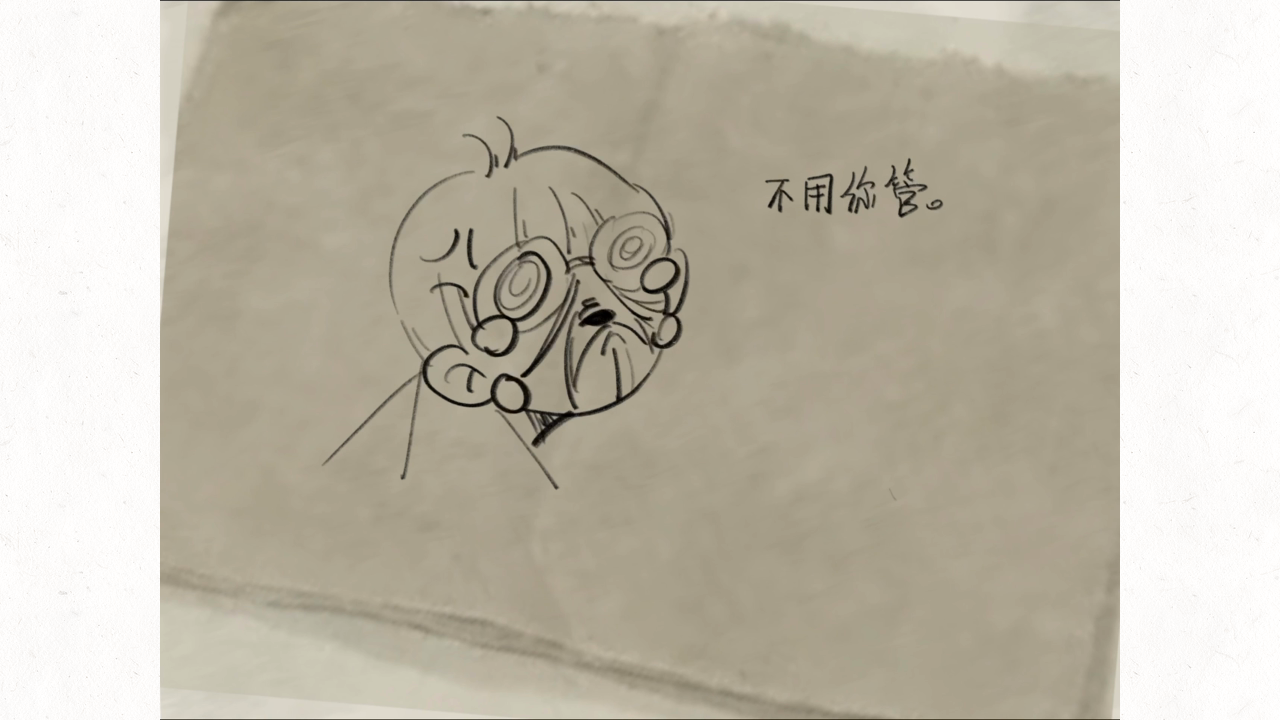 不用你管。